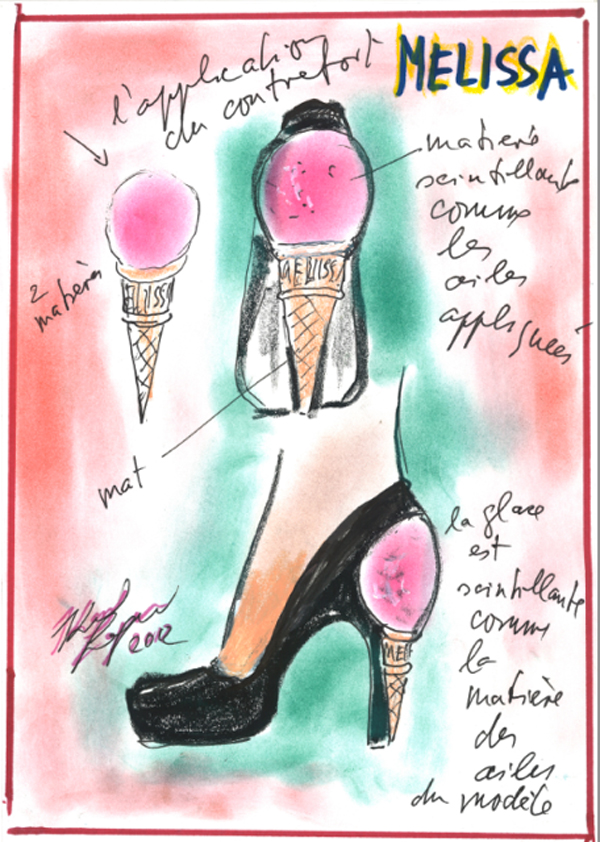 MELISSA
l'application
du contrefort
matière
scintillante
comme
les
ailes
appliquées
2
matières
ELISSA
MELISSA
mat
la glace
est
scintillante
comme
la
matière
des
ailes
du modèle
MELI
2012